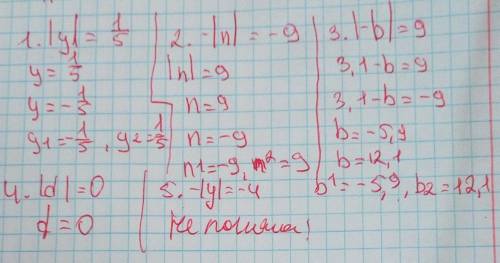 1. |y| = 1/5
y = 1/5
y = -1/5
y1 = -1/5, y2 = 1/5
2. -|n| = -9
|n| = 9
n = 9
n = -9
n1 = -9, n2 = 9
3. |-b| = 9
3,1-b = 9
3,1-b = -9
b = -5,9
b = 12,1
b1 = -5,9, b2 = 12,1
4. |d| = 0
d = 0
5. -|y| = -4
Не поняла!